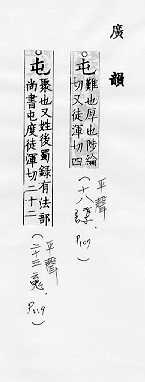 廣韻
屯難也厚也陟綸
切又徒渾切四
(十八諄 平聲
P107)
屯聚也又姓後蜀録有法部
尚書屯度徒渾切二十二
(二十三魂 平聲
P119)